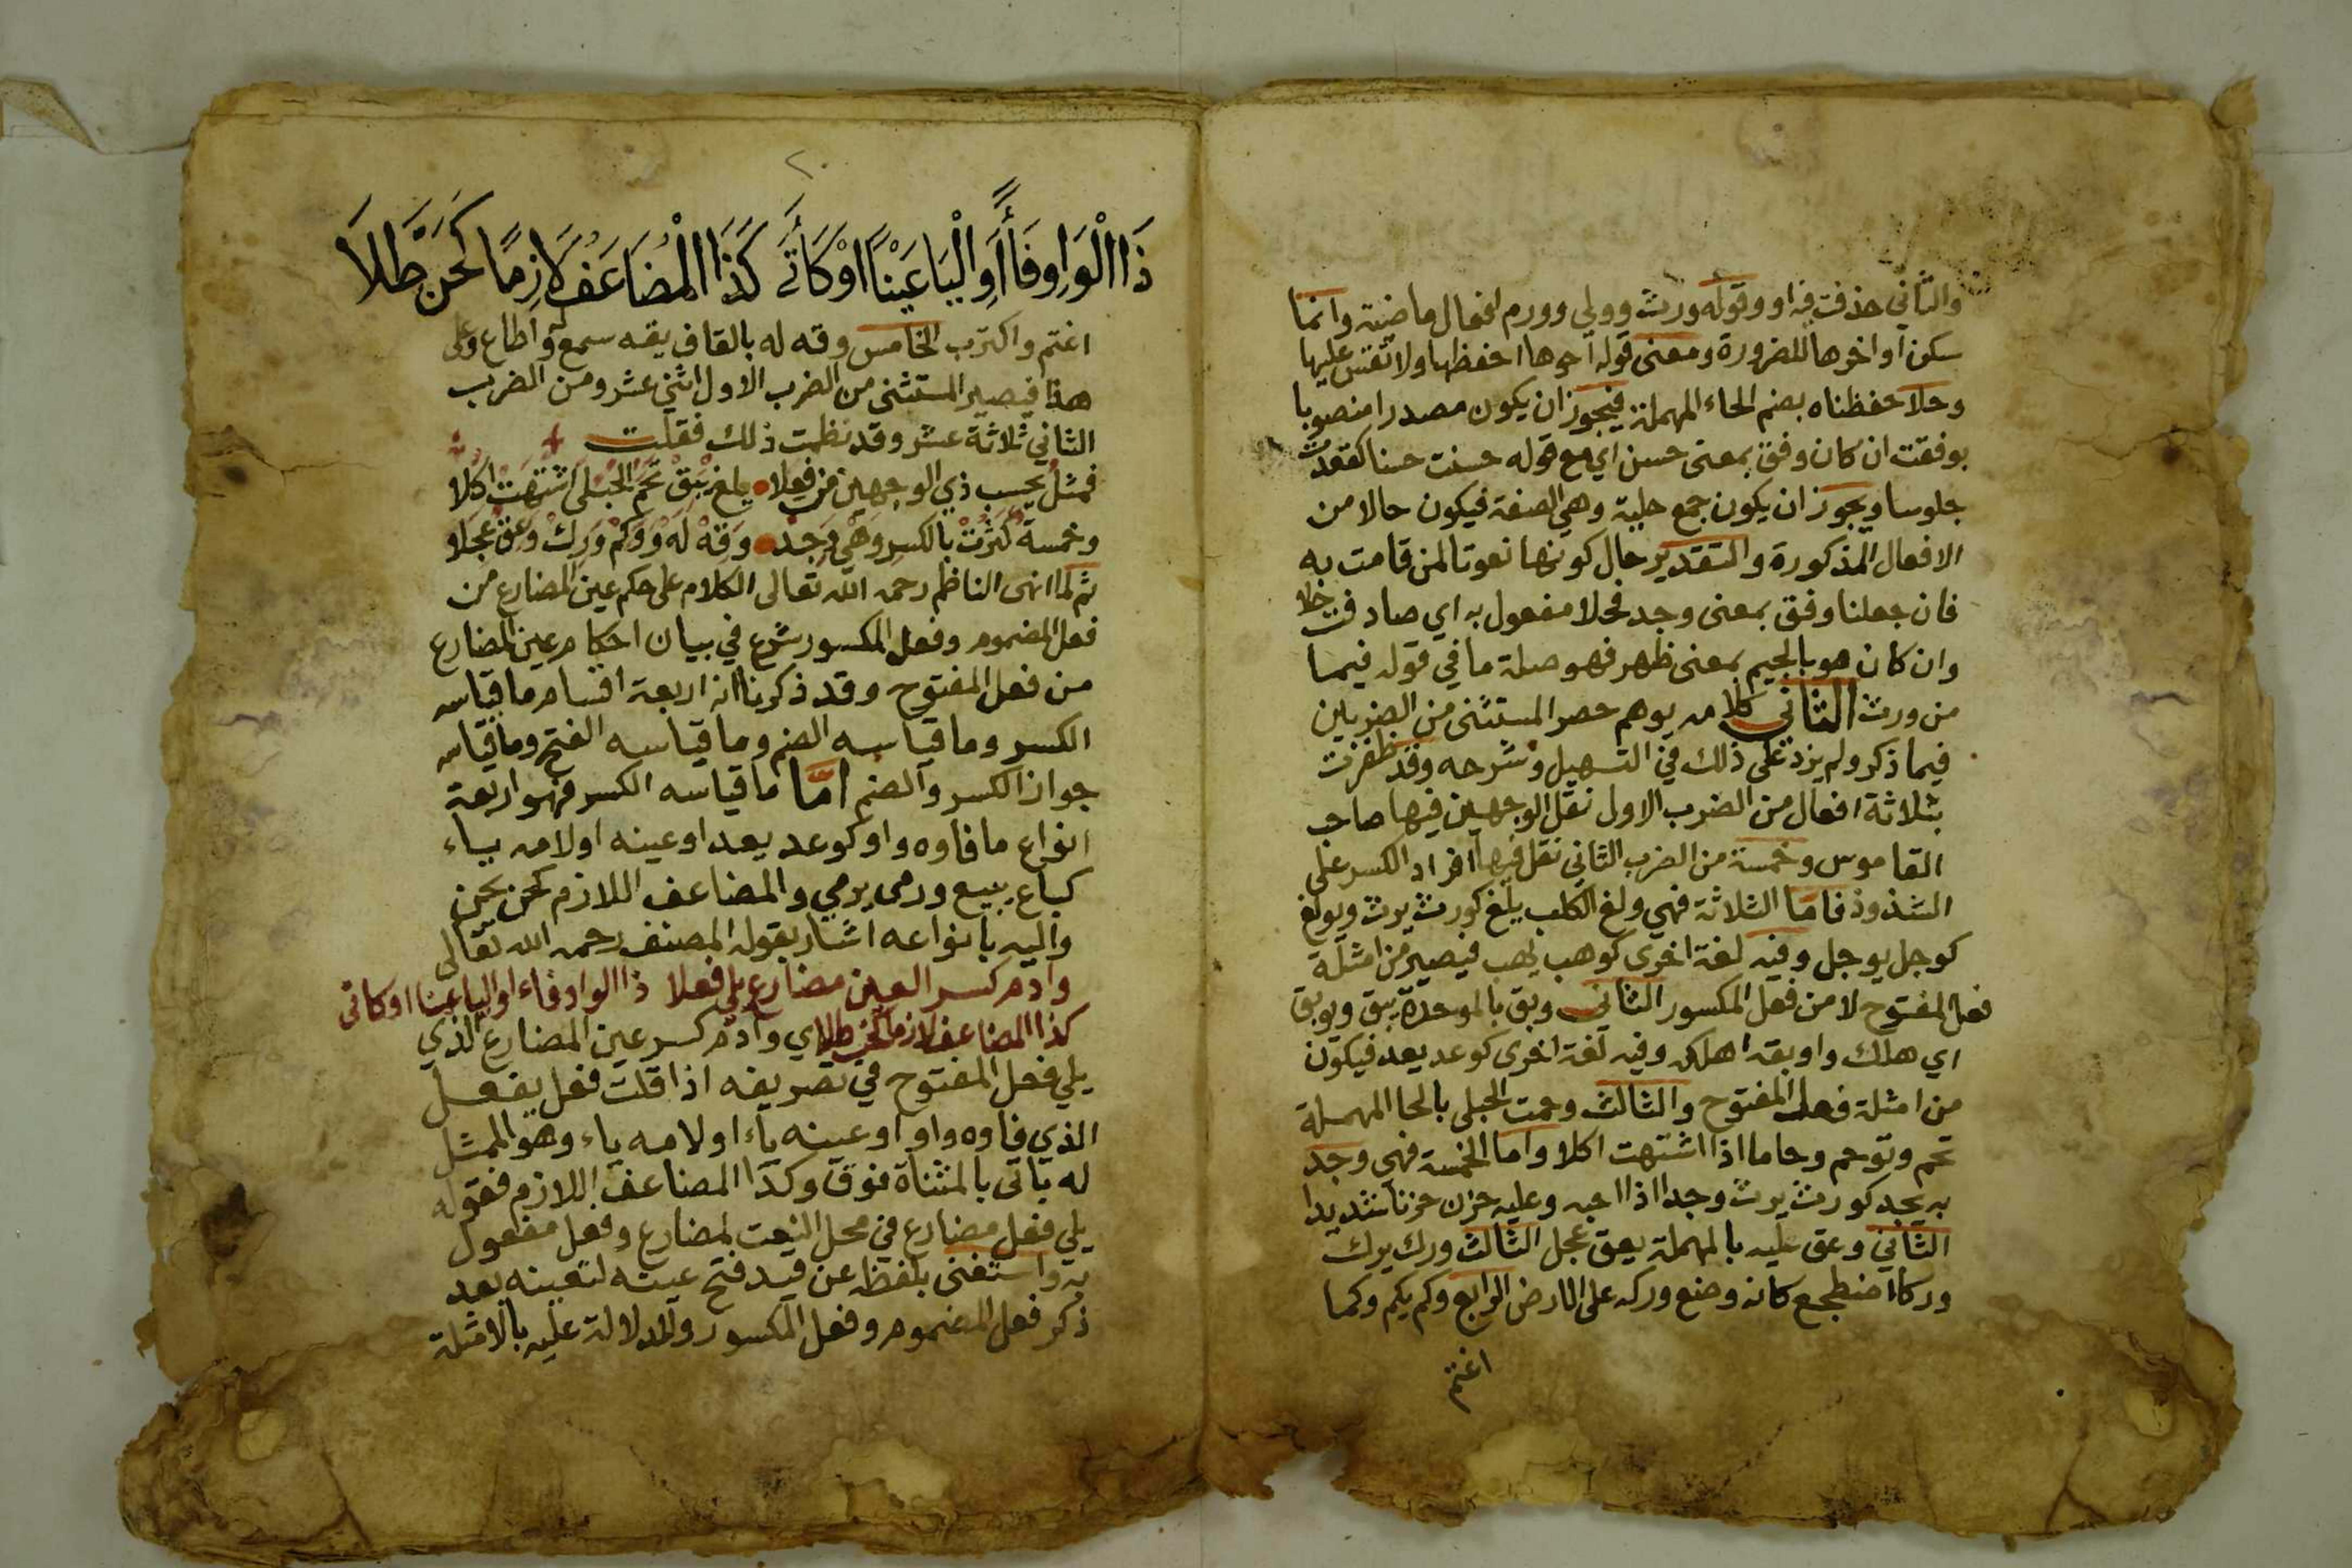 والثاني حذفت فراو وقوله ورث وولي وورم افعال ماضية وانما
سكن اواخرها للضرورة ومعنى قوله احوها احفظها ولا تقس عليها
وحلا حفظناه بضم الحاء المهملة فيجوز ان يكون مصدرا منصوبا
بوفقت ان كان وفق بمعنى حسن اي مع قوله حسنت حسنا كقعدت
جلوسا ويجوز ان يكون جمع حلية وهي الصفة فيكون حالا من
الافعال المذكورة والتقدير حال كونها نعوتا لمن قامت به
فان جعلنا وفق بمعنى وجد فحلا مفعول به اي صادفت حلا
وان كان هو بالجيم بمعنى ظهر فهو صلة ما في قوله فيما
من ورث الثاني كلامه يوهم حصر المستثنى من الضربين
فيما ذكر ولم يزد على ذلك في التسهيل وشرحه وقد ظفرت
بثلاثة افعال من الضرب الاول نقل الوجهين فيها صاحب
القاموس وخمسة من الضرب الثاني نقل فيها افراد الكسر على
الشذوذ فاما الثلاثة فهي ولغ الكلب يلغ كورث يرث ويولغ
كوجل يوجل وفيه لغة اخرى كوهب يهب فيصير من امثلة
فعل المفتوح لا من فعل المكسور الثاني وبق بالموحدة يبق ويوبق
اي هلك واوبقه اهلكه وفيه لغة اخرى كوعد يعد فيكون
من امثلة فعل المفتوح والثالث وحمت الحبلى بالحا المهملة
تحم وتوحم وحاما اذا اشتهت اكلا واما الخمسة فهي وجد
به يجد كورث يرث وجدا اذا احبه وعليه حزن حزنا شديدا
الثاني وعق عليه بالمهملة يعق عجل الثالث ورك يرك
وركا اضطجع كانه وضع وركه على الارض الرابع وكم يكم وكما
اغتم
٢٠
ذَا الْوَاوِ فَاءً أَوِ الْيَا عَيْنًا اوْ كَأَتَى كَذَا الْمُضَاعَفُ لَازِمًا كَحَنَّ طَلَا
اغتم واكترب الخامس وقه له بالقاف يقه سمع له واطاع وعلى
هذا فيصير المستثنى من الضرب الاول اثني عشر ومن الضرب
الثاني ثلاثة عشر وقد نظمت ذلك فقلت
فمثل يحسب ذي الوجهين من فعلا يلغ يبق تحم الحبلى اشتهت اكلا
وخمسة كيرث بالكسر وهي وجد وقه له ووكم ورك وعق عجلا
ثم لما انهى الناظم رحمه الله تعالى الكلام على حكم عين المضارع من
فعل المضموم وفعل المكسور شرع في بيان احكام عين المضارع
من فعل المفتوح وقد ذكرنا انه اربعة اقسام ما قياسه
الكسر وما قياسه الضم وما قياسه الفتح وما قياسه
جواز الكسر والضم اما ما قياسه الكسر فهو اربعة
انواع ما فاوه واو كوعد يعد او عينه او لامه بياء
كباع يبيع ورمى يرمي والمضاعف اللازم كحن يحن
واليه بانواعه اشار بقوله المصنف رحمه الله تعالى
وادم كسر العين مضارع يلي فعلا ذا الواو فاء او اليا عينا او كاتى
كذا المضاعف لازما كحن طلا اي وادم كسر عين المضارع الذي
يلي فعل المفتوح في تصريفه اذا قلت فعل يفعل
الذي فاوه واو او عينه ياء او لامه ياء وهو الممثل
له باتى بالمثناة فوق وكذا المضاعف اللازم فقوله
يلي فعل مضارع في محل النعت لمضارع وفعل مفعول
به واستغنى بلفظه عن قيد فتح عينه لتعيينه بعد
ذكر فعل المضموم وفعل المكسور ولدلالة عليه بالامثلة